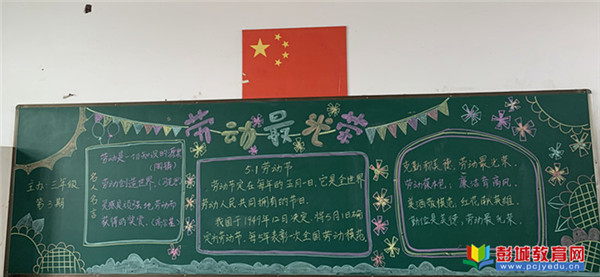 劳动最光荣
主办：三年级
第3期
名人名言
劳动是一切知识的源泉
（陶铸）
劳动创造世界。（马克思）
灵感
劳动而
获得的奖赏。
5.1劳动节
劳动节定在每年的五月一日，它是全世界
劳动人民共同拥有的节日。
我国于1949年12月决定，将5月1日确
定为劳动节，每5年表彰一次全国劳动模范
克勤
美德，劳动最光荣。
劳动
廉洁
英雄
勤俭是美德，劳动最光荣。
彭城教育网
www.pcjyedu.cn